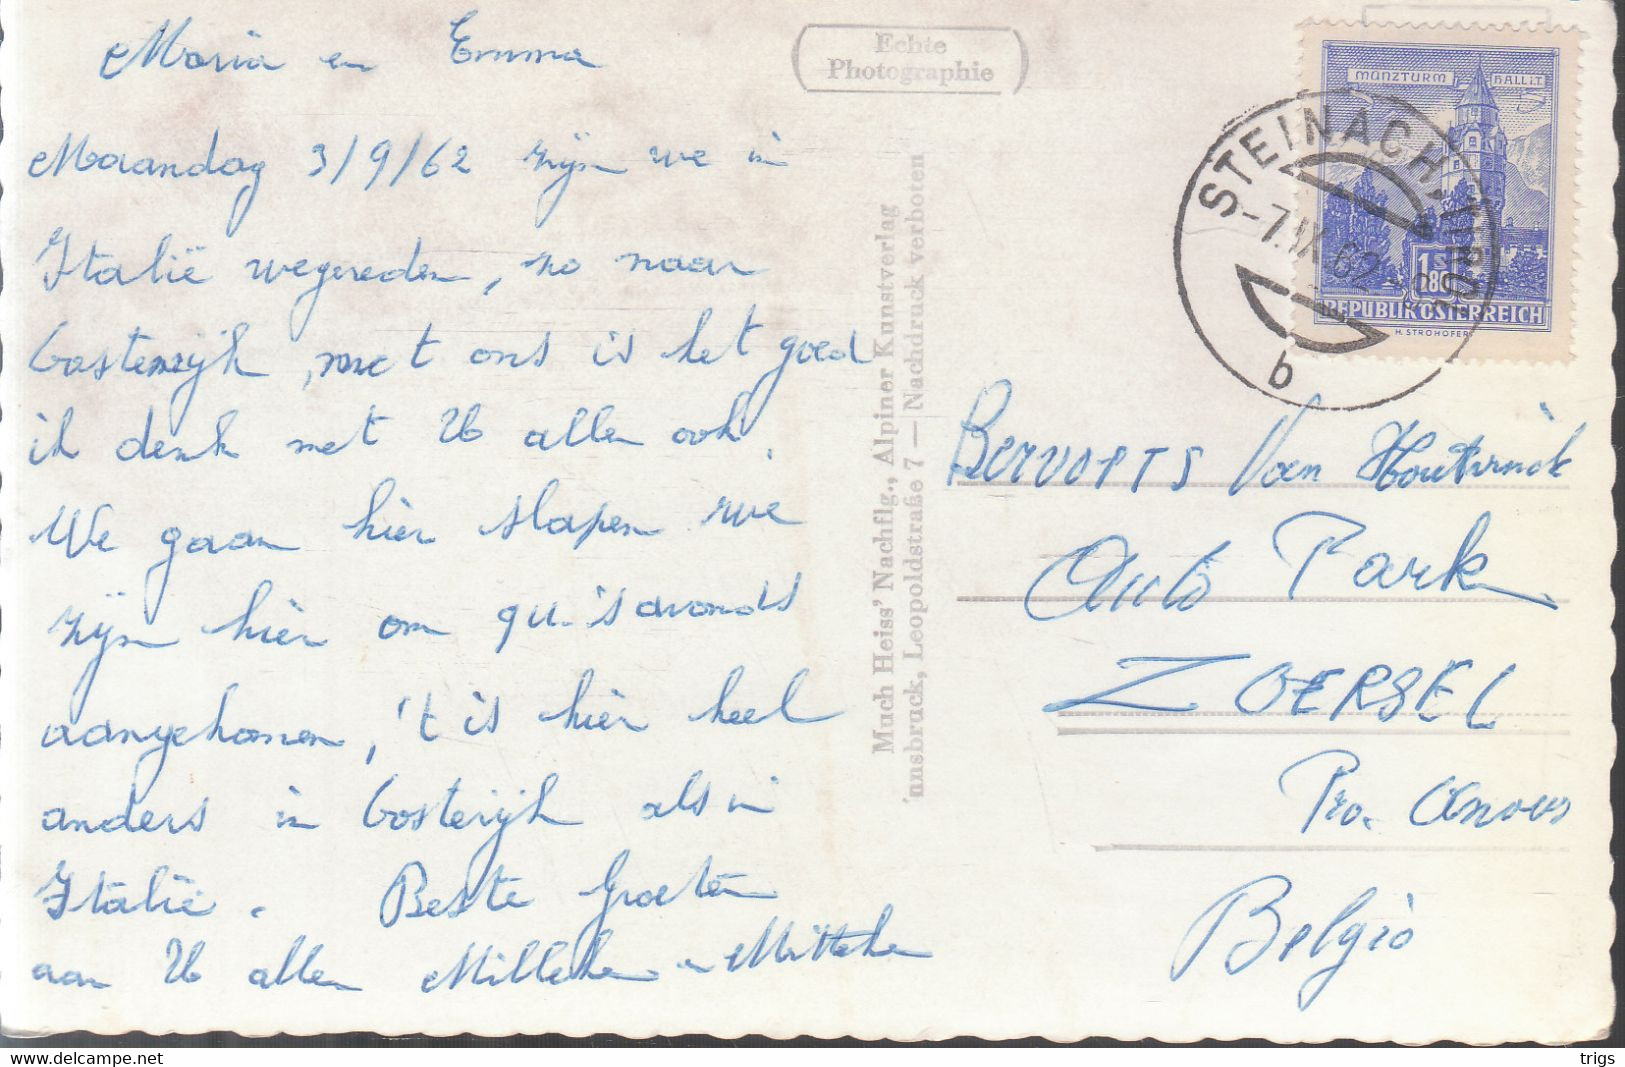 Maria en Emma
Maandag 3/9/62 zijn we in
Italië weggereden, zo naar
Oostenrijk, met ons is het goed
ik denk met U allen ook.
We gaan hier slapen we
zijn hier om 9u. 's avonds
aangekomen, 't is hier heel
anders in Oosterijk als in
Italië. Beste Groeten
aan U allen
Echte
Photographie
Much Heiss' Nachflg., Alpiner Kunstverlag
nnsbruck, Leopoldstraße 7 — Nachdruck verboten
MÜNZTURM HALL i.T.
1 S
80
REPUBLIK ÖSTERREICH
H. STROHOFER
STEINACH, TIROL
-7.IX.62
b
BERVOETS Van
Auto Park
ZOERSEL
Pro. Anvers
Belgio
delcampe.net
trigs